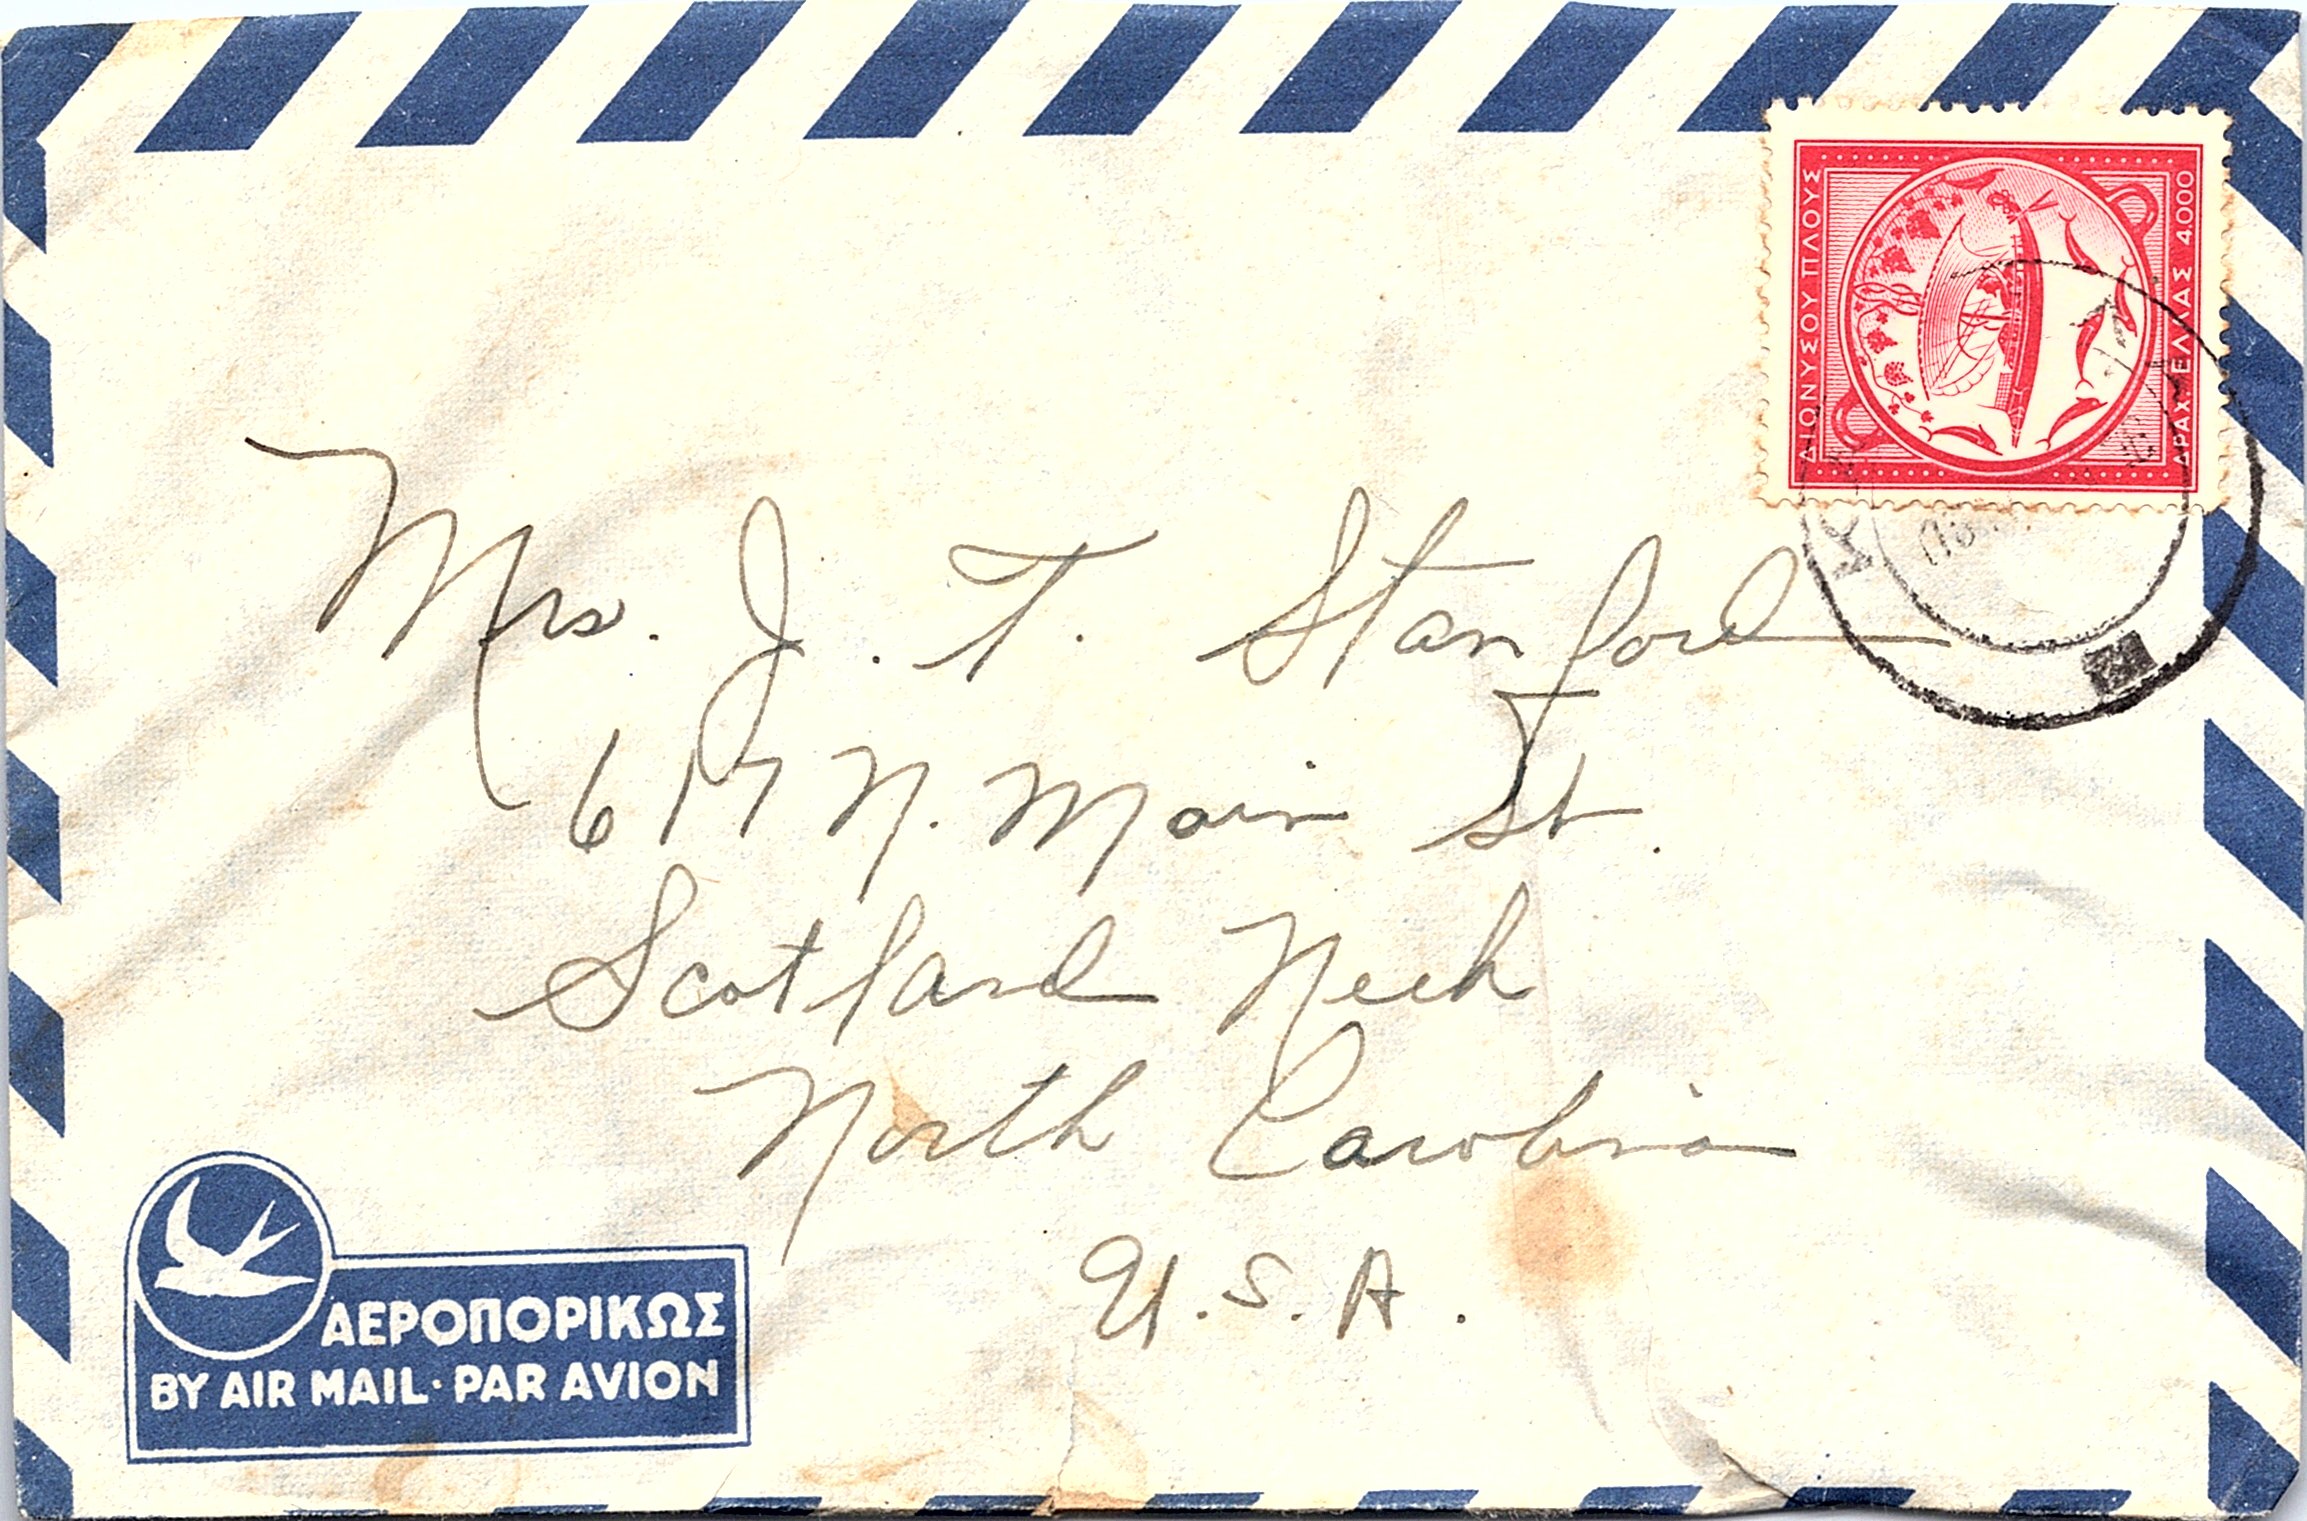 ΔΙΟΝΥΣΟΥ ΠΛΟΥΣ
ΔΡΑΧ. ΕΛΛΑΣ 4000
Mrs. J. T. Stanford
617 N. Main St.
Scotland Neck
North Carolina
U.S.A.
ΑΕΡΟΠΟΡΙΚΩΣ
BY AIR MAIL · PAR AVION